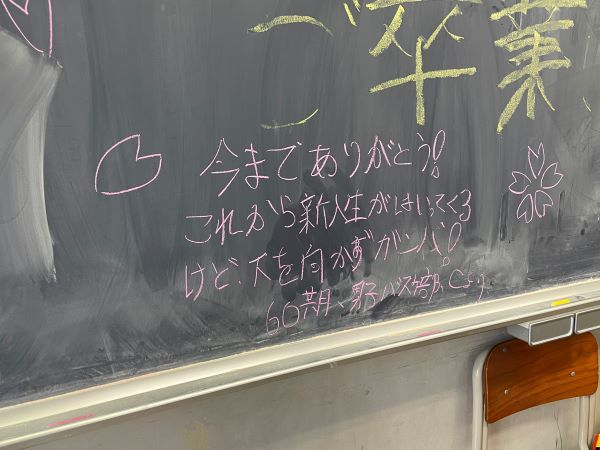 ご卒業
今までありがとう!
これから新入生がはいってくる
けど、下を向かずガンバ!
60期、男子バス部、